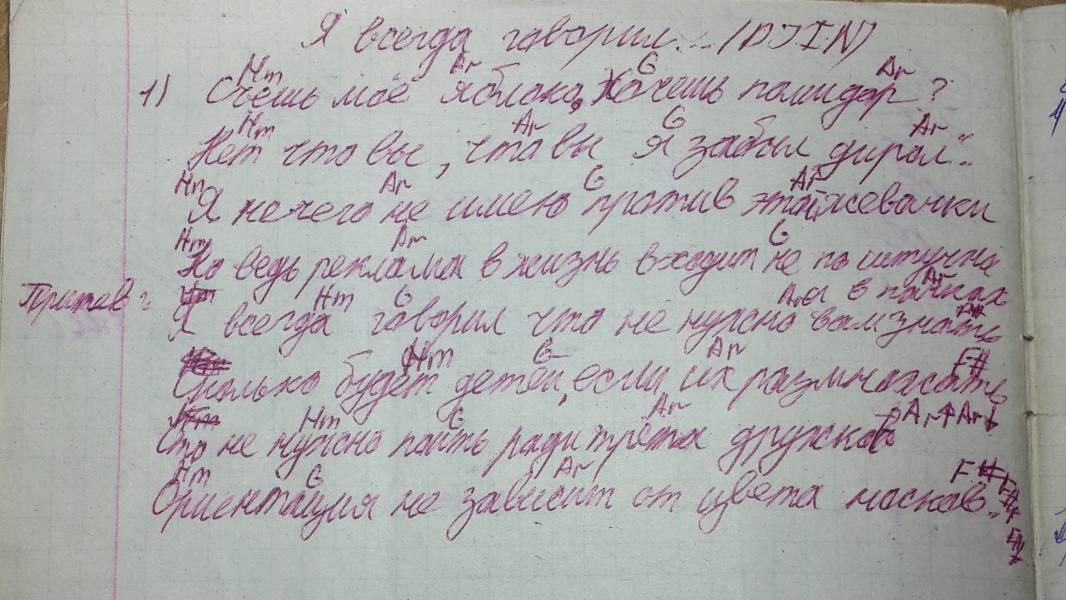 Я всегда говорил... (DJIN)
Hm Ar G Ar
1) Съешь моё яблоко, Хочешь помидор?
Hm Ar G Ar
Нет что вы, что вы я забыл дирол...
Hm Ar G Ar
Я нечего не имею против этой жевачки
Hm Ar G
Но ведь реклама в жизнь входит не по штучно
Ar
а в пачках
Припев:
Hm Hm G Ar F#
Я всегда говорил что не нужно вам знать
Hm G Ar F#
Сколько будет детей, если их размножать
Hm G Ar Ar↑Ar↓
Что не нужно пить ради трёта дружков
Hm G Ar F# F# F#
Ориентация не зависит от цвета носков...